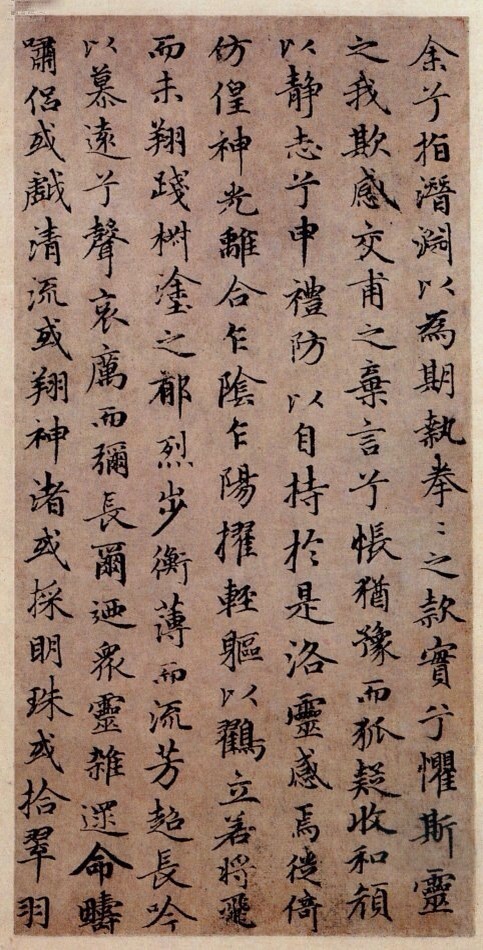 余兮指潛淵以為期執拳〻之款實兮懼斯靈
之我欺感交甫之棄言兮悵猶豫而狐疑收和顔
以静志兮申禮防以自持於是洛靈感焉徙倚
仿偟神光離合乍陰乍陽擢輕軀以鶴立若將飛
而未翔踐椒塗之郁烈步衡薄而流芳超長吟
以慕遠兮聲哀厲而彌長爾迺衆靈雜遝命疇
嘯侣或戲清流或翔神渚或採明珠或拾翠羽